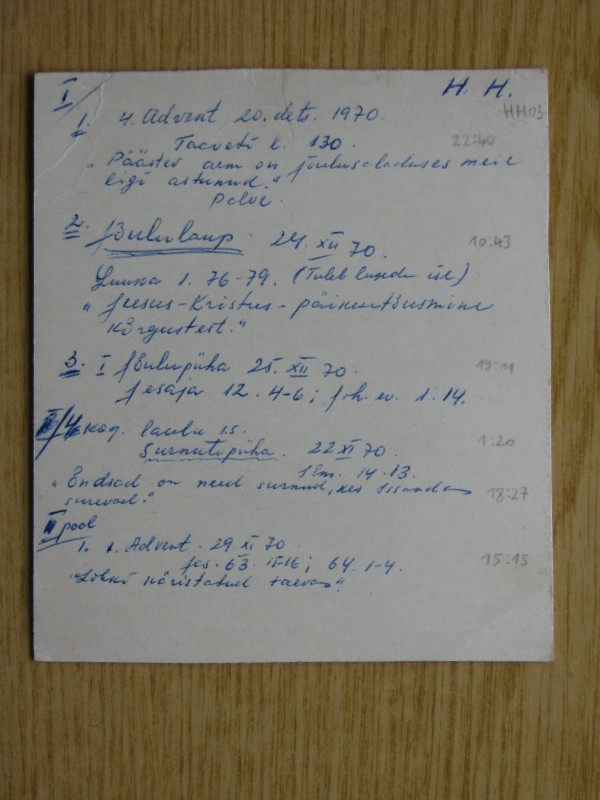 I
H. H.
HH03
1. 4. Advent 20. dets. 1970.
Taaveti l. 130. 22:40
"Päästev arm on jõulusaladuses meie
ligi astunud."
Palve.
2. Jõululaup. 24. XII 70. 10:43
Luuka 1. 76-79. (Tuleb lugeda ise)
"Jeesus-Kristus - päikesetõusmine
kõrgustest."
3. I jõulupüha 25. XII 70. 19:11
Jesaja 12. 4-6; Joh. ev. 1. 14.
4. kog. laulu 1.s. 1:20
Surnutepüha. 22 XI 70.
Ilm. 14. 13.
"Õndsad on need surnud, kes Issandas
surevad." 18:27
II pool
1. 1. Advent. 29. XI 70.
Jes. 63. 15-16; 64. 1-4. 15:15
"Lõhki käristatud taevas".